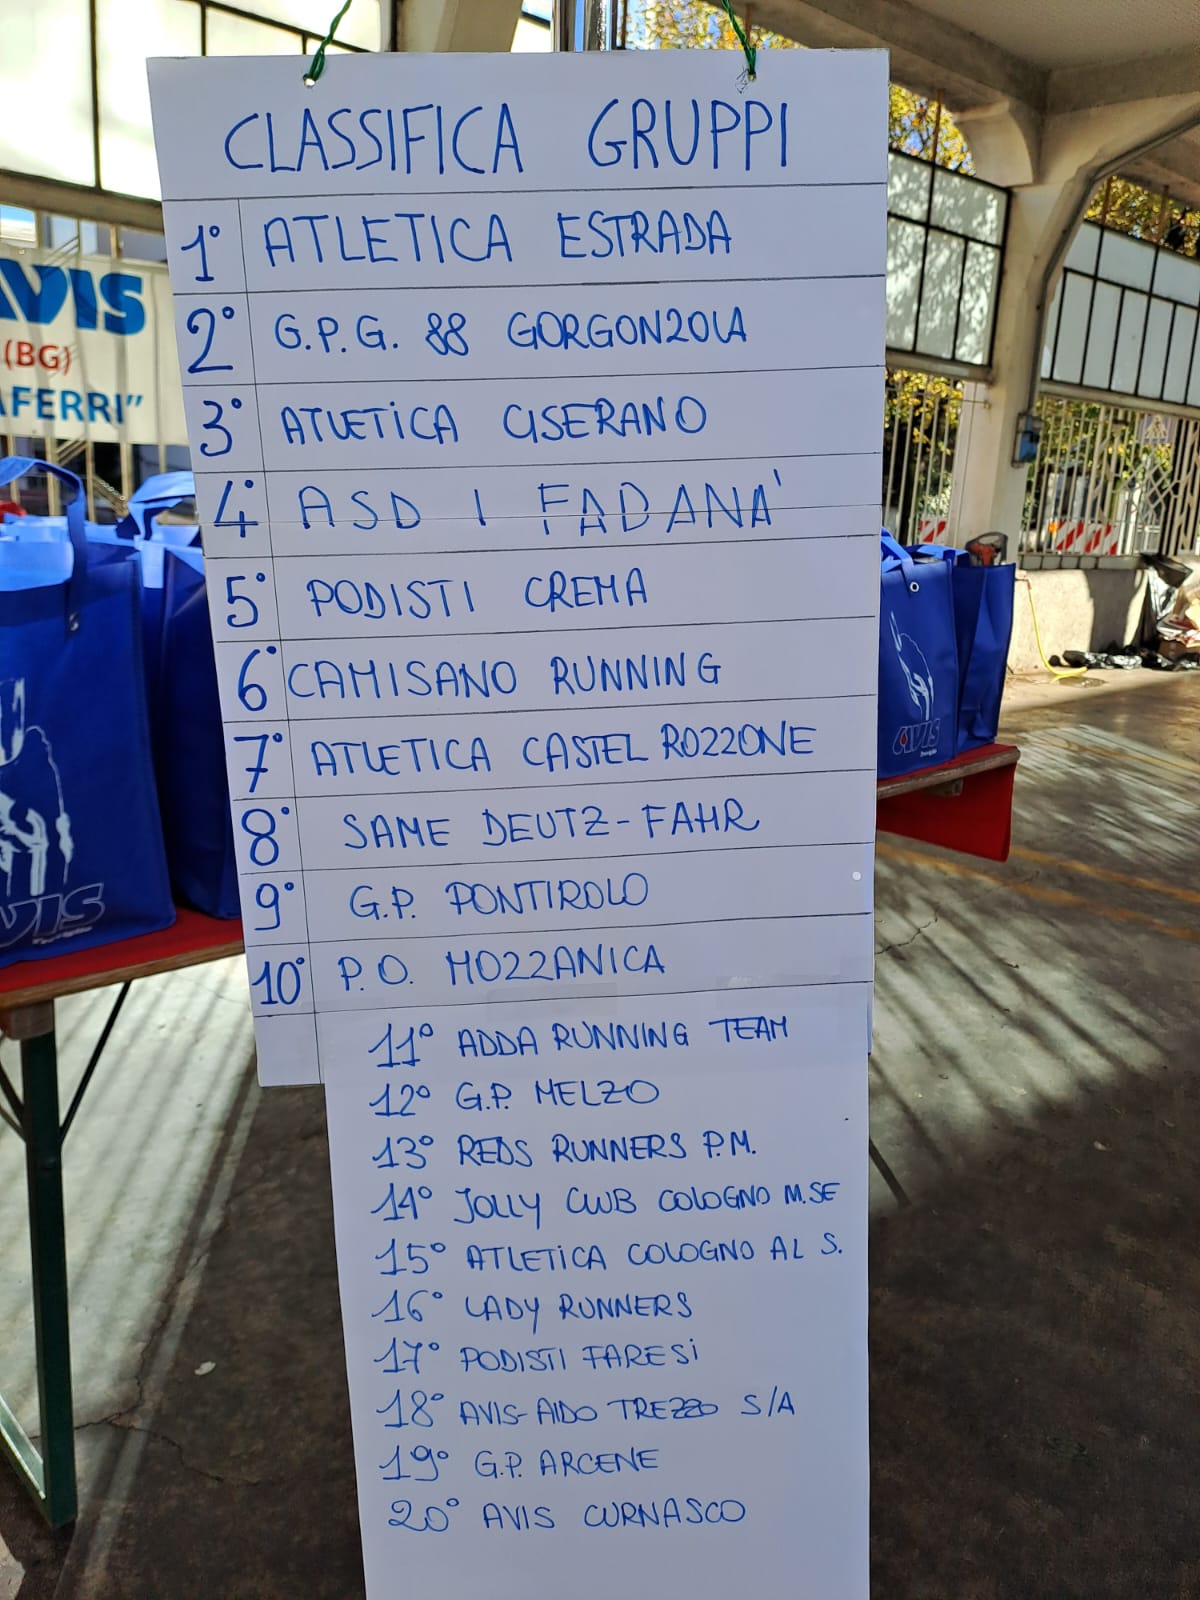 CLASSIFICA GRUPPI
1° ATLETICA ESTRADA
2° G.P.G. 88 GORGONZOLA
3° ATLETICA CISERANO
4° ASD I FADANA'
5° PODISTI CREMA
6° CAMISANO RUNNING
7° ATLETICA CASTEL ROZZONE
8° SAME DEUTZ-FAHR
9° G.P. PONTIROLO
10° P.O. MOZZANICA
11° ADDA RUNNING TEAM
12° G.P. MELZO
13° REDS RUNNERS P.M.
14° JOLLY CLUB COLOGNO M.SE
15° ATLETICA COLOGNO AL S.
16° LADY RUNNERS
17° PODISTI FARESI
18° AVIS-AIDO TREZZO S/A
19° G.P. ARCENE
20° AVIS CURNASCO
AVIS
(BG)
AFERRI"
VIS
AVIS